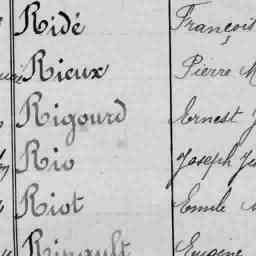 Ridé François
Rieux Pierre M
Rigourd Ernest J
Rio Joseph Ju
Riot Emile
Rivault Eugène